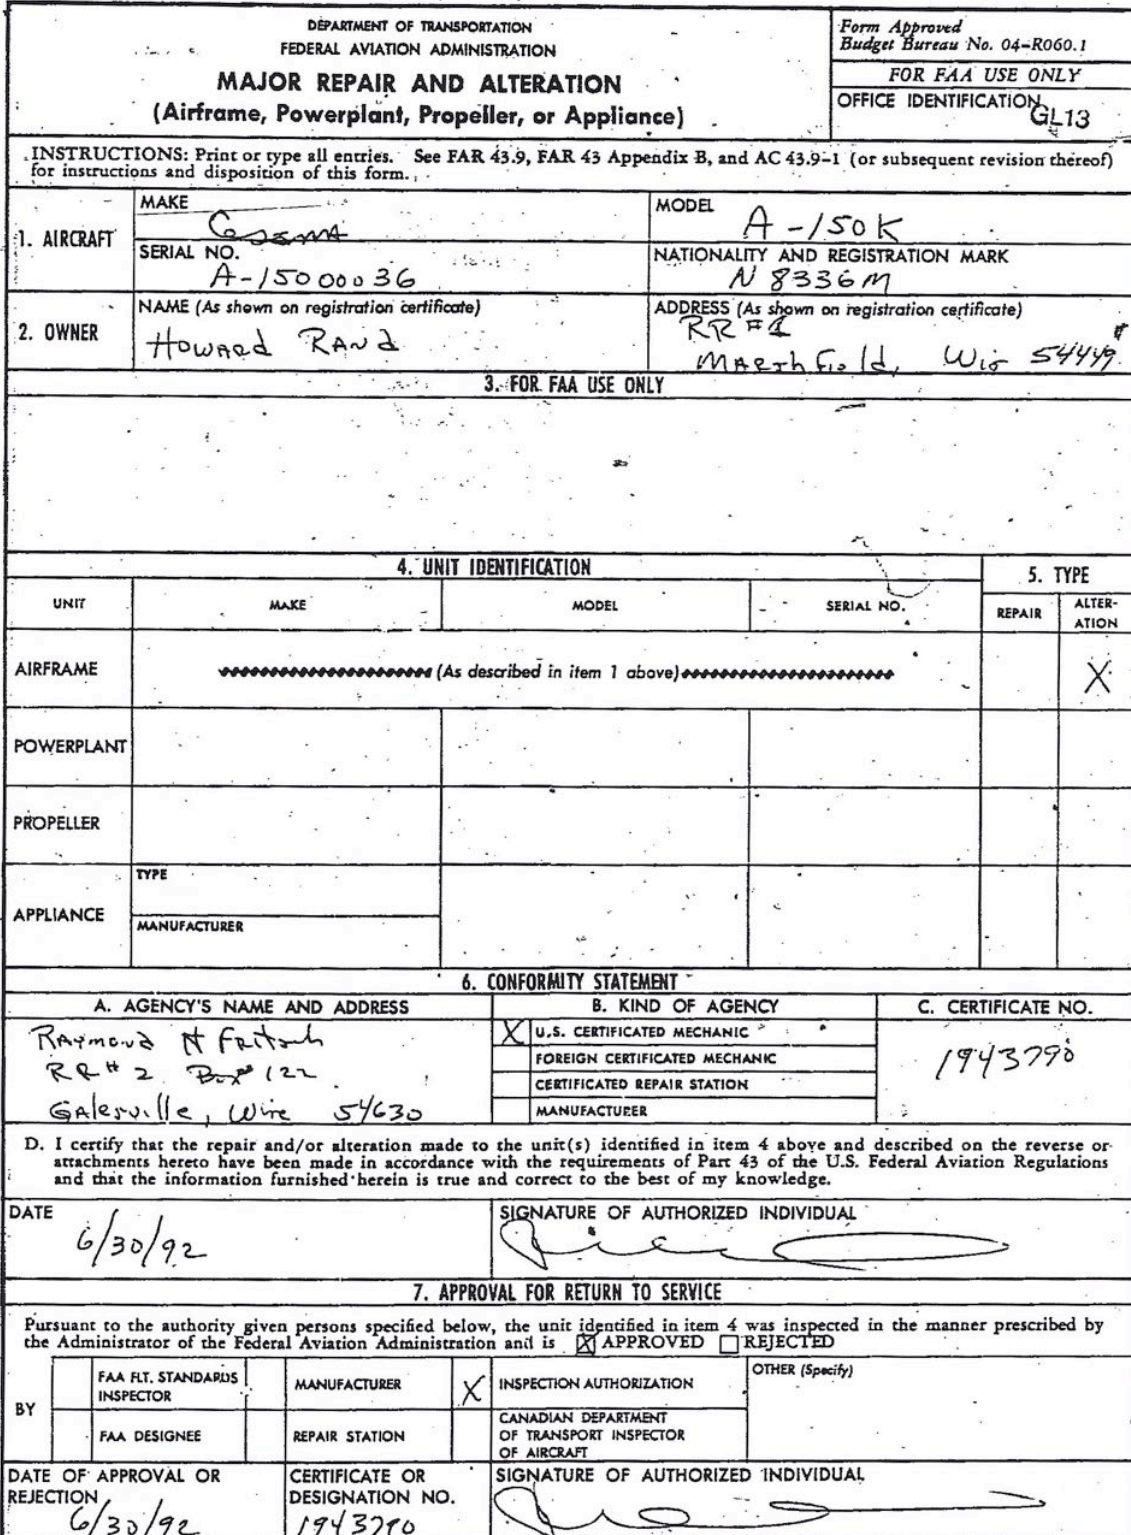 DEPARTMENT OF TRANSPORTATION
FEDERAL AVIATION ADMINISTRATION
MAJOR REPAIR AND ALTERATION
(Airframe, Powerplant, Propeller, or Appliance)
Form Approved
Budget Bureau No. 04-R060.1
FOR FAA USE ONLY
OFFICE IDENTIFICATION
GL13
INSTRUCTIONS: Print or type all entries. See FAR 43.9, FAR 43 Appendix B, and AC 43.9-1 (or subsequent revision thereof)
for instructions and disposition of this form.
1. AIRCRAFT
MAKE
Cessna
MODEL
A-150K
SERIAL NO.
A-15000036
NATIONALITY AND REGISTRATION MARK
N 8336M
2. OWNER
NAME (As shown on registration certificate)
Howard Rand
ADDRESS (As shown on registration certificate)
RR #1
Marshfield, Wis 54449
3. FOR FAA USE ONLY
4. UNIT IDENTIFICATION
5. TYPE
UNIT
MAKE
MODEL
SERIAL NO.
REPAIR
ALTER-
ATION
AIRFRAME
(As described in item 1 above)
X
POWERPLANT
PROPELLER
APPLIANCE
TYPE
MANUFACTURER
6. CONFORMITY STATEMENT
A. AGENCY'S NAME AND ADDRESS
B. KIND OF AGENCY
C. CERTIFICATE NO.
Raymond H Fritsch
RR# 2 Box 122
Galesville, Wisc 54630
X U.S. CERTIFICATED MECHANIC
FOREIGN CERTIFICATED MECHANIC
CERTIFICATED REPAIR STATION
MANUFACTURER
1943790
D. I certify that the repair and/or alteration made to the unit(s) identified in item 4 above and described on the reverse or
attachments hereto have been made in accordance with the requirements of Part 43 of the U.S. Federal Aviation Regulations
and that the information furnished herein is true and correct to the best of my knowledge.
DATE
6/30/92
SIGNATURE OF AUTHORIZED INDIVIDUAL
7. APPROVAL FOR RETURN TO SERVICE
Pursuant to the authority given persons specified below, the unit identified in item 4 was inspected in the manner prescribed by
the Administrator of the Federal Aviation Administration and is X APPROVED REJECTED
BY
FAA FLT. STANDARDS
INSPECTOR
MANUFACTURER
X INSPECTION AUTHORIZATION
OTHER (Specify)
FAA DESIGNEE
REPAIR STATION
CANADIAN DEPARTMENT
OF TRANSPORT INSPECTOR
OF AIRCRAFT
DATE OF APPROVAL OR
REJECTION
6/30/92
CERTIFICATE OR
DESIGNATION NO.
1943790
SIGNATURE OF AUTHORIZED INDIVIDUAL